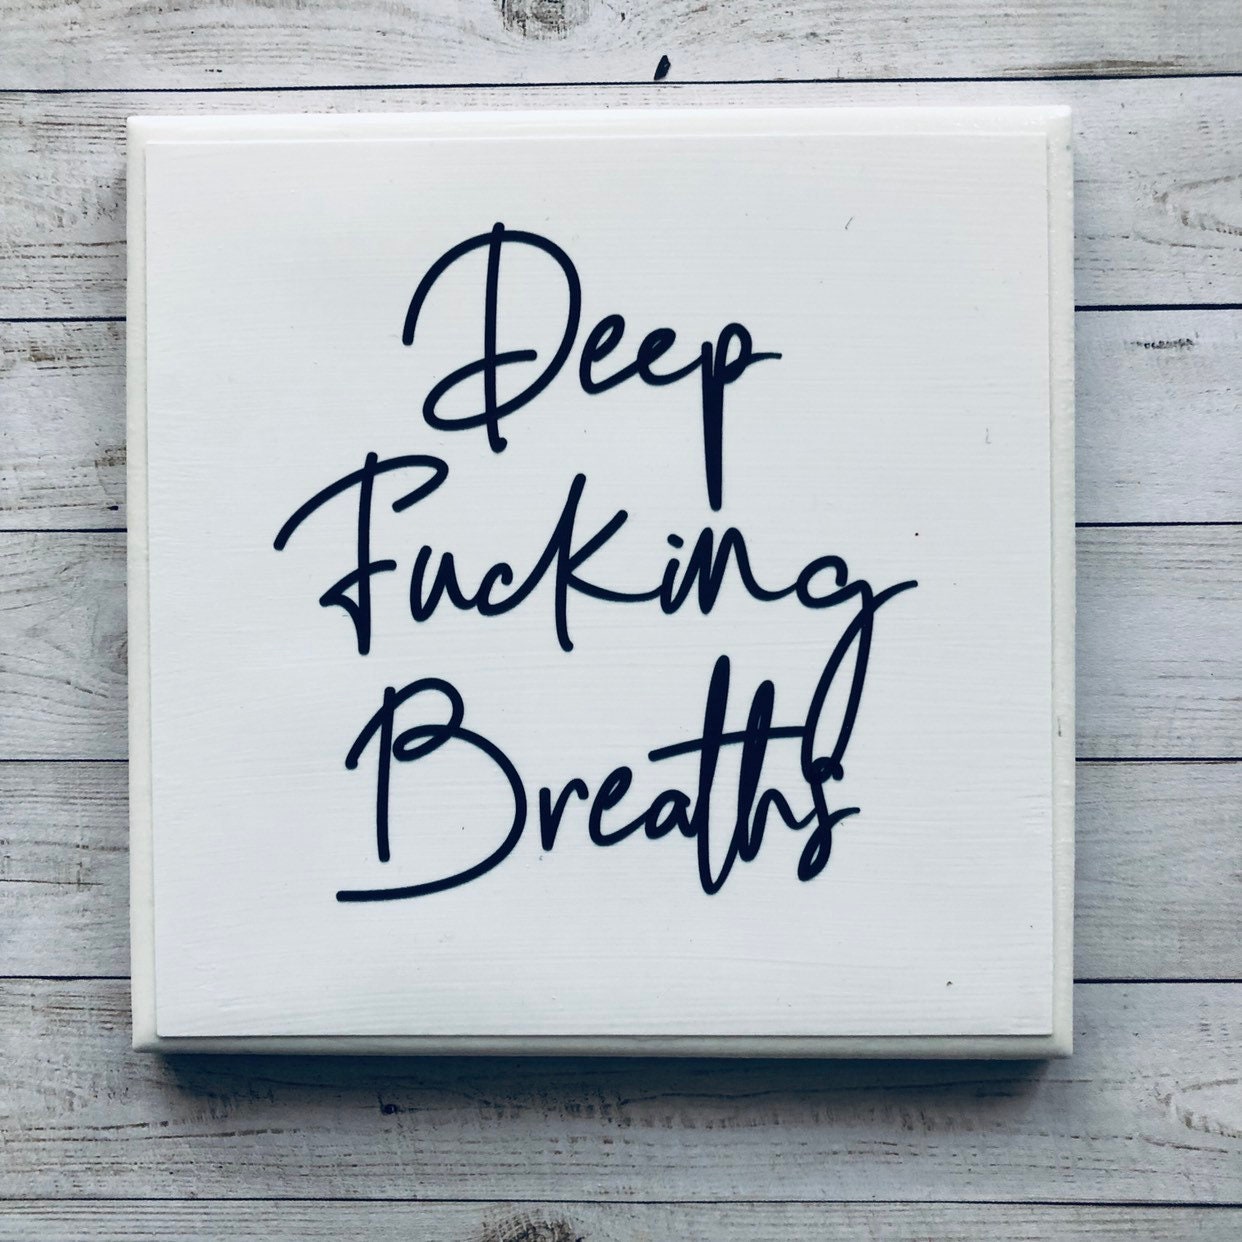 Deep
Fucking
Breaths